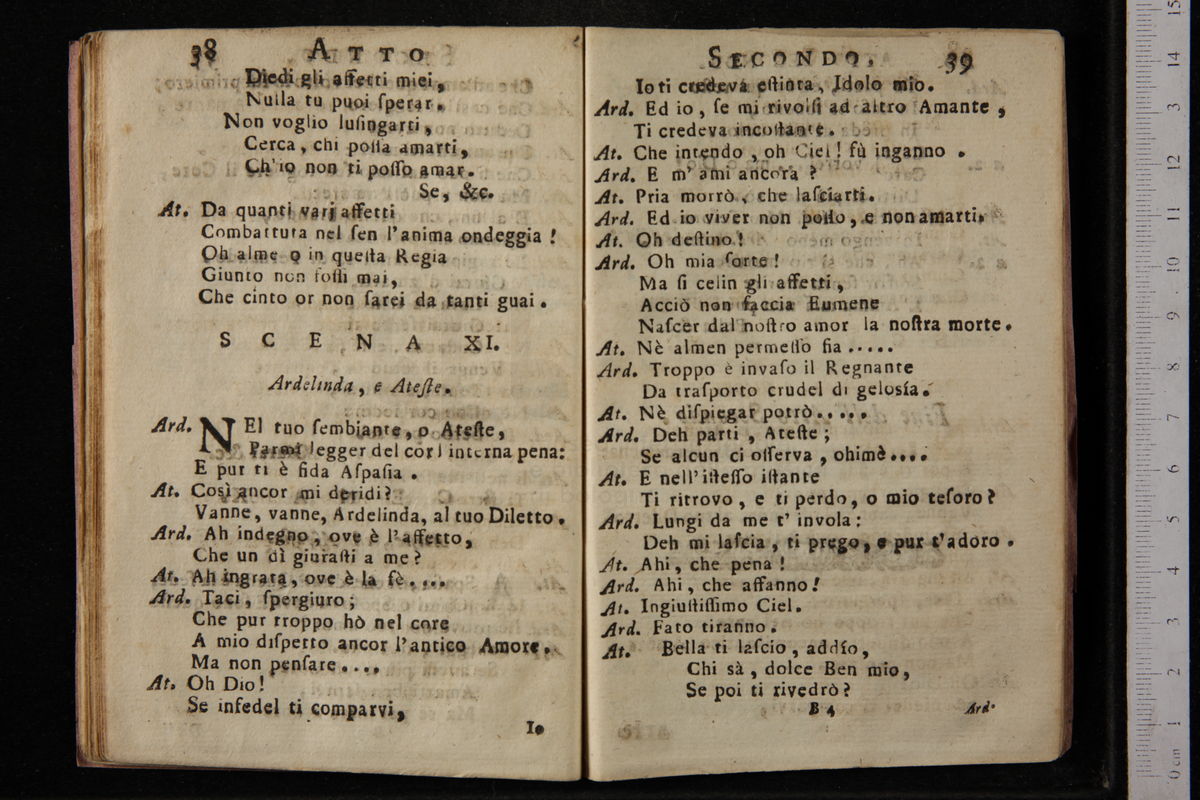 38 ATTO
Diedi gli affetti miei,
Nulla tu puoi ſperar.
Non voglio luſingarti,
Cerca, chi poſſa amarti,
Ch'io non ti poſſo amar.
Se, &c.
At. Da quanti varj affetti
Combattuta nel ſen l'anima ondeggia!
Oh alme o in queſta Regia
Giunto non foſſi mai,
Che cinto or non ſarei da tanti guai.
SCENA XI.
Ardelinda, e Ateſte.
Ard. NEl tuo ſembiante, o Ateſte,
Parmi legger del cor l interna pena:
E pur ti è fida Aſpaſia.
At. Così ancor mi deridi?
Vanne, vanne, Ardelinda, al tuo Diletto.
Ard. Ah indegno, ove è l'affetto,
Che un dì giuraſti a me?
At. Ah ingrata, ove è la fè....
Ard. Taci, ſpergiuro;
Che pur troppo hò nel core
A mio diſpetto ancor l'antico Amore.
Ma non penſare....
At. Oh Dio!
Se infedel ti comparvi,
Io
SECONDO. 39
Io ti credeva eſtinta, Idolo mio.
Ard. Ed io, ſe mi rivolſi ad altro Amante,
Ti credeva incoſtante.
At. Che intendo, oh Ciel! fù inganno.
Ard. E m' ami ancora?
At. Pria morrò, che laſciarti.
Ard. Ed io viver non poſſo, e non amarti.
At. Oh deſtino!
Ard. Oh mia ſorte!
Ma ſi celin gli affetti,
Acciò non faccia Eumene
Naſcer dal noſtro amor la noſtra morte.
At. Nè almen permeſſo fia.....
Ard. Troppo è invaſo il Regnante
Da traſporto crudel di geloſía.
At. Nè diſpiegar potrò.....
Ard. Deh parti, Ateſte;
Se alcun ci oſſerva, ohimè....
At. E nell'iſteſſo iſtante
Ti ritrovo, e ti perdo, o mio teſoro?
Ard. Lungi da me t' invola:
Deh mi laſcia, ti prego, e pur t'adoro.
At. Ahi, che pena!
Ard. Ahi, che affanno!
At. Ingiuſtiſſimo Ciel.
Ard. Fato tiranno.
At. Bella ti laſcio, addío,
Chi sà, dolce Ben mio,
Se poi ti rivedrò?
B 4 Ard.
0 cm 1 2 3 4 5 6 7 8 9 10 11 12 13 14 15